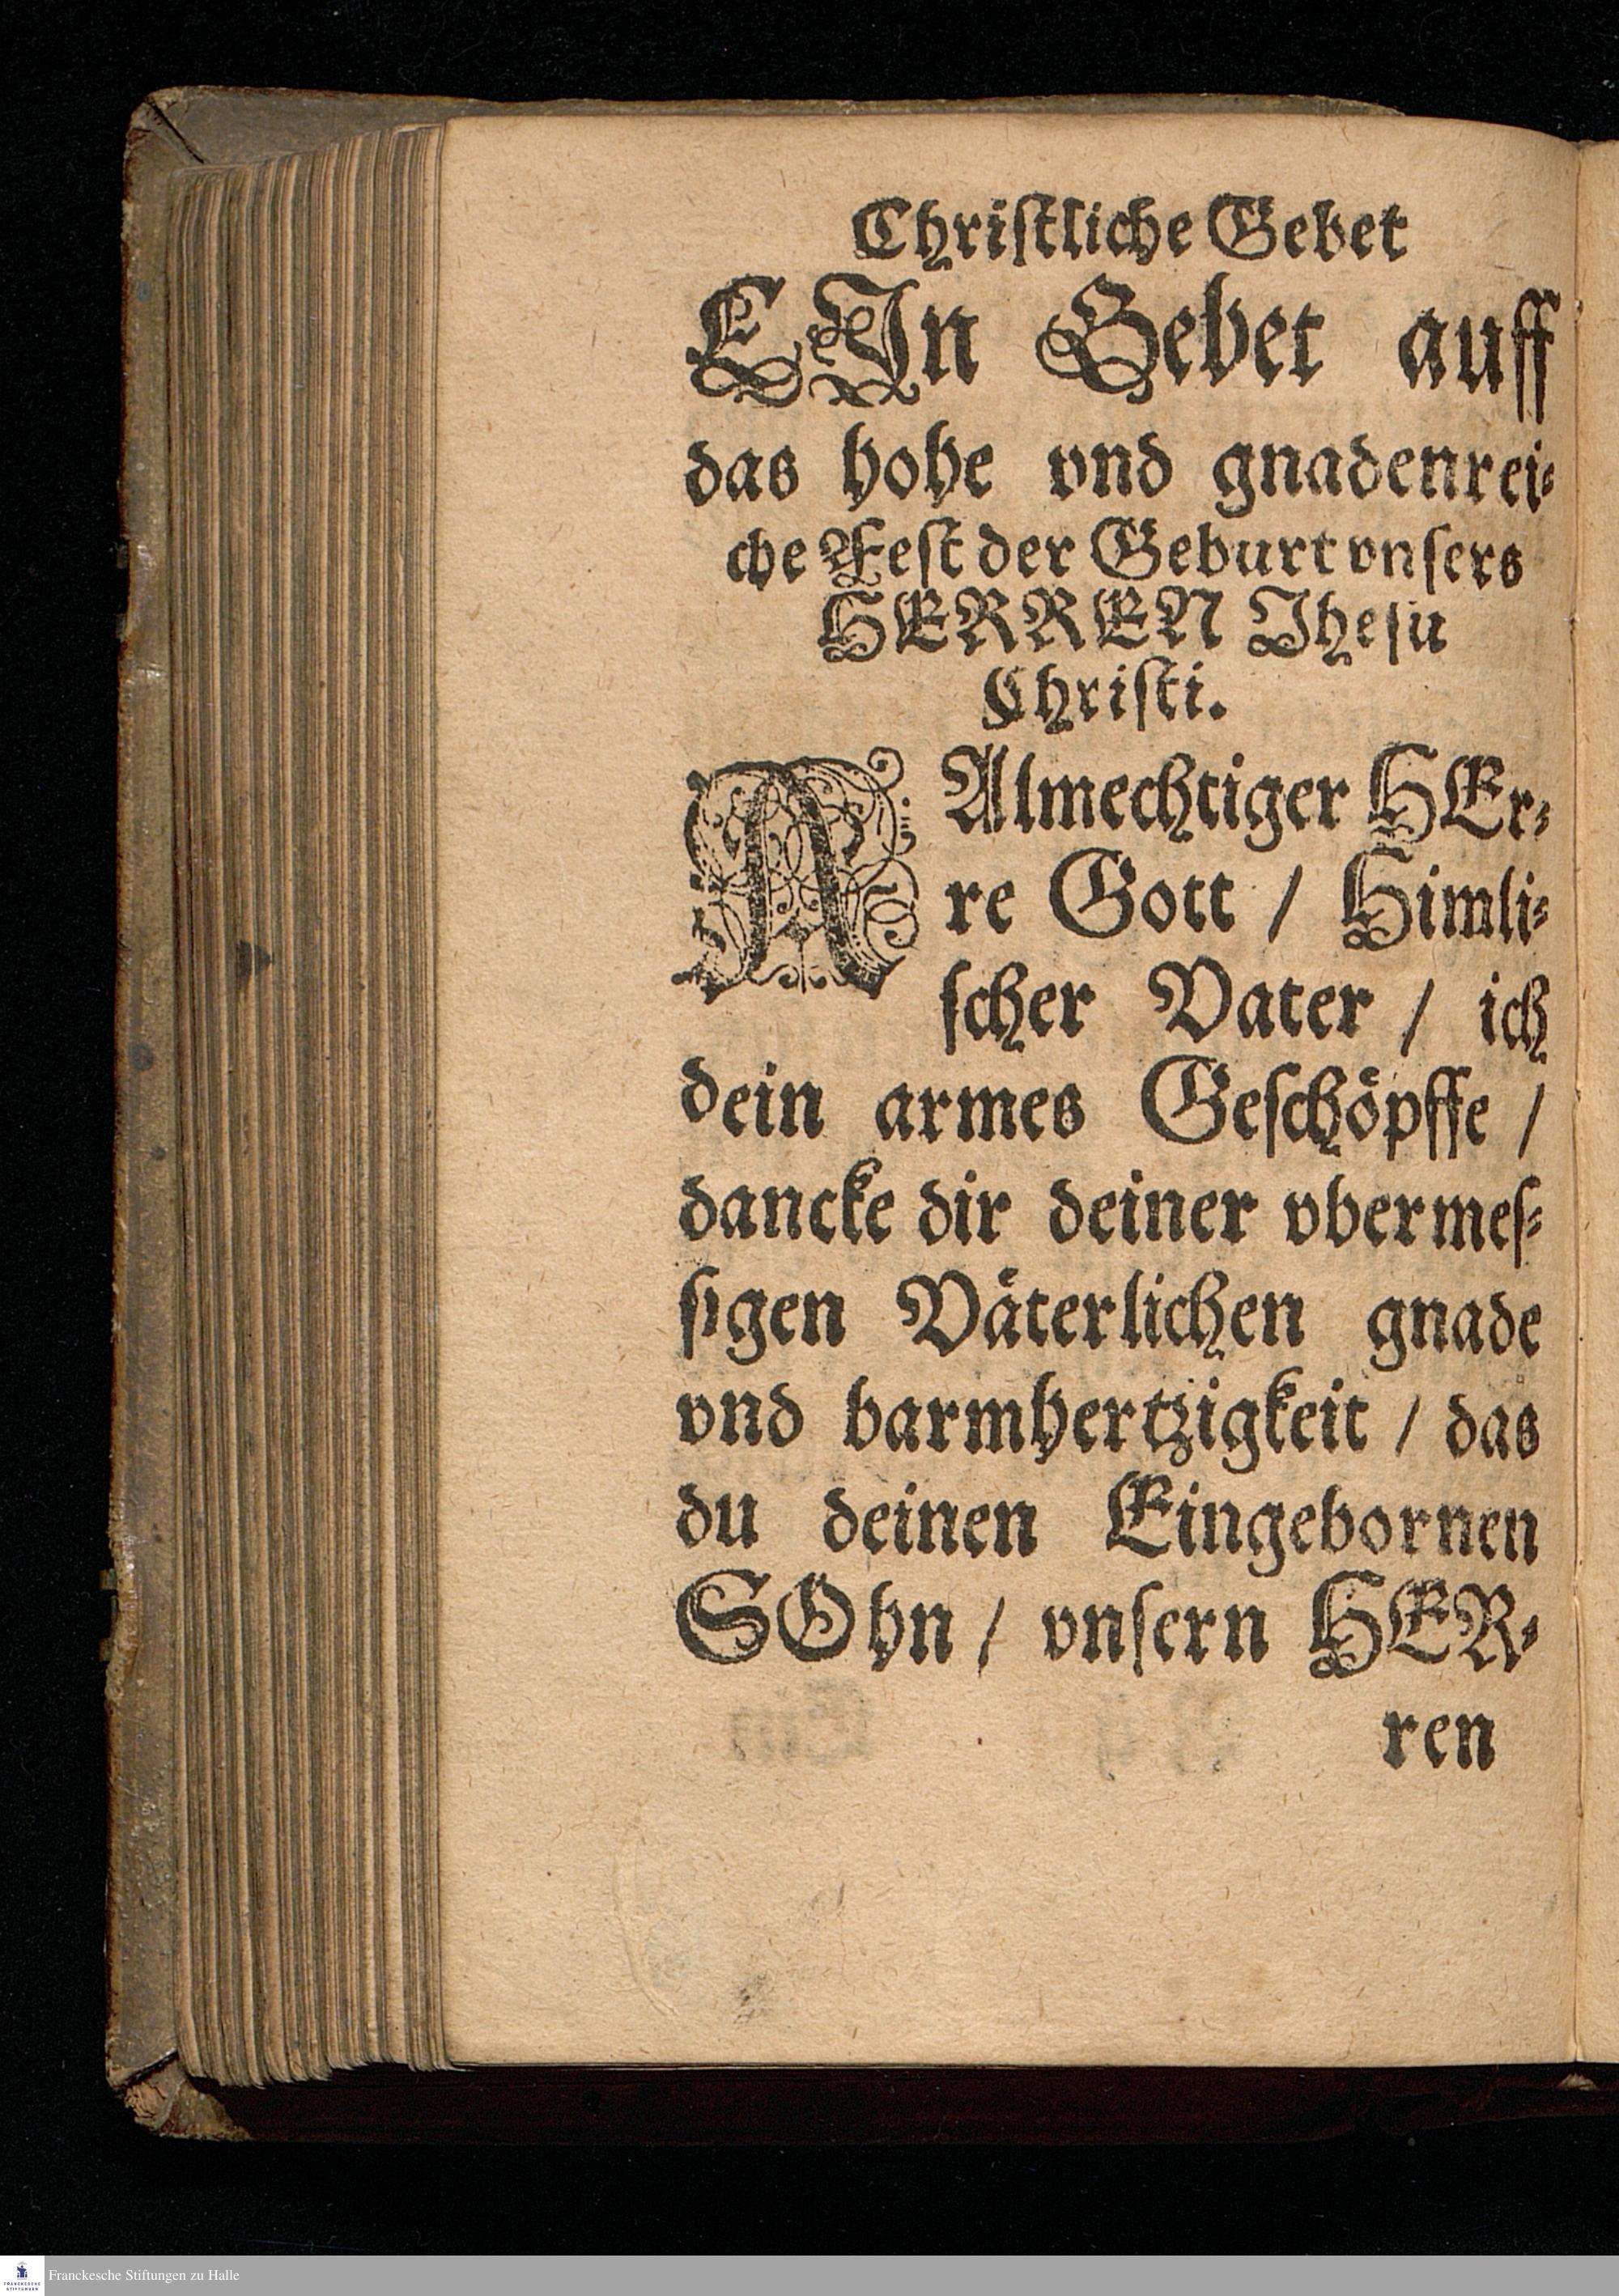 Chriſtliche Gebet
EJn Gebet auff
das hohe vnd gnadenrei⸗
che Feſt der Geburt vnſers
HERREN Jheſu
Chriſti.
AAlmechtiger HEr⸗
re Gott / Himli⸗
ſcher Vater / ich
dein armes Geſchöpffe /
dancke dir deiner vbermeſ⸗
ſigen Väterlichen gnade
vnd barmhertzigkeit / das
du deinen Eingebornen
SOhn / vnſern HER⸗
ren
FRANCKESCHE STIFTUNGEN
Franckesche Stiftungen zu Halle